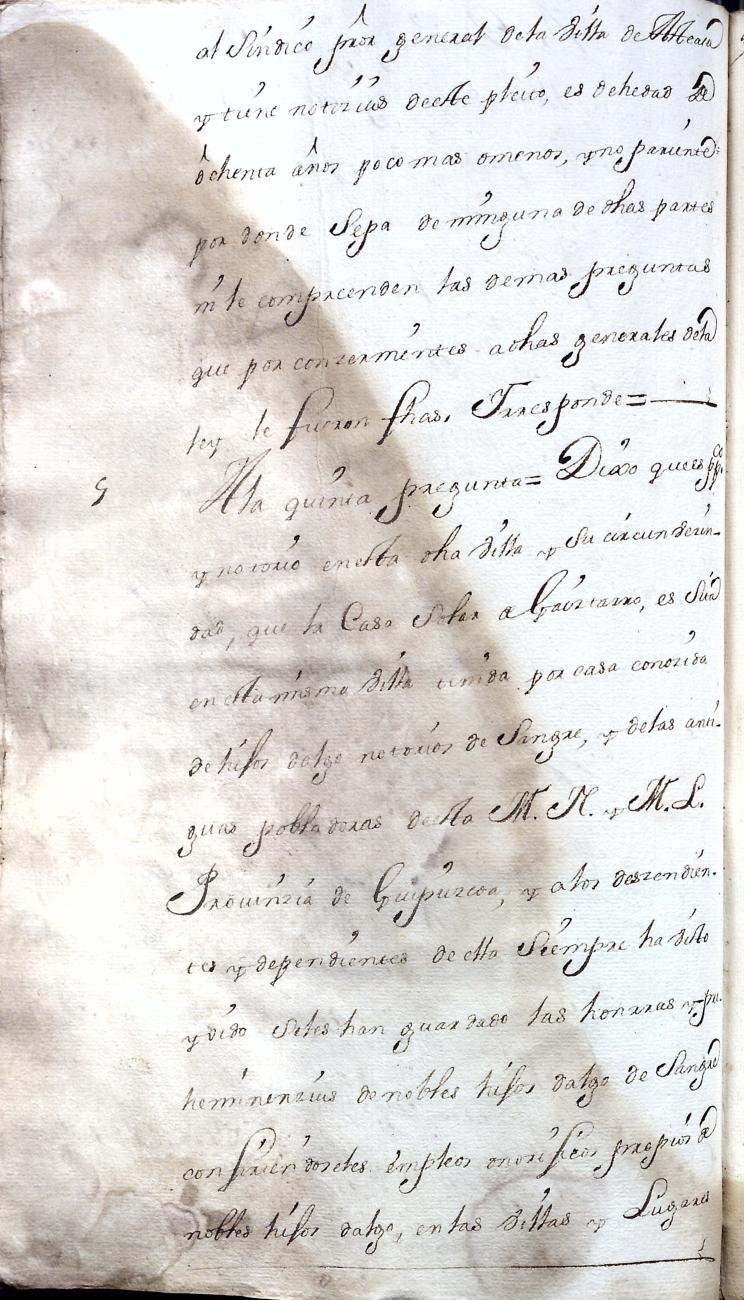 al Síndico pror general dela villa de
y tiene notizias deeste pleito, es dehedad de
ochenta años poco mas omenos, yno pariente
por donde Sepa deninguna de dhas partes
ni le comprenden las demas preguntas
que por conzernientes adhas generales dela
ley le fueron fhas, Yrresponde=
5 Ala quinta pregunta= Dixo que es ppco
y notorio enesta dha villa y Su circunvezin-
dad, que la Casa Solar de, es Sita
en esta misma villa tenida por casa conozida
de hijos dalgo notorios de Sangre, y delas anti-
guas pobladoras deesta M. N. y M. L.
Provinzia de Guipuzcoa, y alos deszendien-
tes y dependientes de ella Siempre ha visto
y oido Seles han guardado las honrras y pre-
heminenzias denobles hijos dalgo de Sangre
confiriendoseles empleos onorificos propios de
nobles hijos dalgo, enlas villas y Lugares